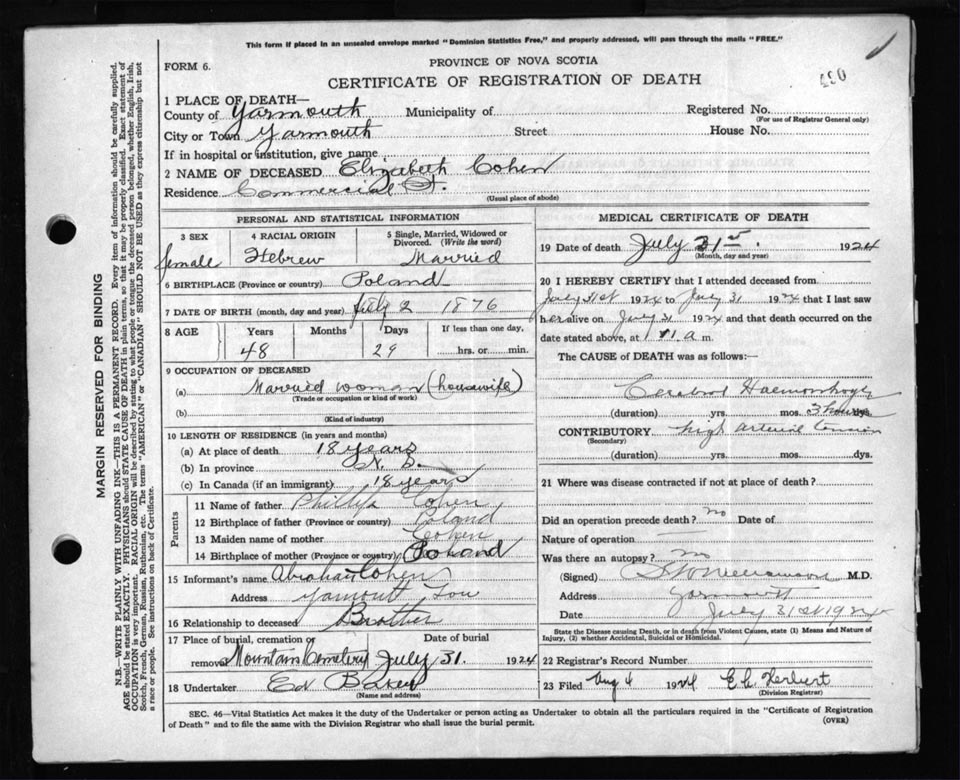 This form if placed in an unsealed envelope marked "Dominion Statistics Free," and properly addressed, will pass through the mails "FREE."
FORM 6.
PROVINCE OF NOVA SCOTIA
CERTIFICATE OF REGISTRATION OF DEATH
1 PLACE OF DEATH—
County of Yarmouth Municipality of Registered No.
(For use of Registrar General only)
City or Town Yarmouth Street House No.
If in hospital or institution, give name
2 NAME OF DECEASED Elizabeth Cohen
Residence Commercial St.
(Usual place of abode)
PERSONAL AND STATISTICAL INFORMATION
3 SEX
female
4 RACIAL ORIGIN
Hebrew
5 Single, Married, Widowed or
Divorced. (Write the word)
Married
6 BIRTHPLACE (Province or country) Poland
7 DATE OF BIRTH (month, day and year) July 2 1876
8 AGE Years Months Days If less than one day,
48 29 hrs. or min.
9 OCCUPATION OF DECEASED
(a) Married woman (housewife)
(Trade or occupation or kind of work)
(b)
(Kind of industry)
10 LENGTH OF RESIDENCE (in years and months)
(a) At place of death 18 years
(b) In province
(c) In Canada (if an immigrant) 18 years
Parents
11 Name of father Cohen
12 Birthplace of father (Province or country) Poland
13 Maiden name of mother Cohen
14 Birthplace of mother (Province or country) Poland
15 Informant's name Abraham Cohen
Address
16 Relationship to deceased Brother
17 Place of burial, cremation or Date of burial
removal Mountain Cemetery July 31. 1924
18 Undertaker Ed
(Name and address)
MEDICAL CERTIFICATE OF DEATH
19 Date of death July 31st. 1924
(Month, day and year)
20 I HEREBY CERTIFY that I attended deceased from
July 31st 1924 to July 31 1924 that I last saw
her alive on July 31 1924 and that death occurred on
date stated above, at a m.
The CAUSE of DEATH was as follows:
Cerebral Haemorrhage
(duration) yrs. mos. 3 hours dys.
CONTRIBUTORY high arterial tension
(Secondary)
(duration) yrs. mos. dys.
21 Where was disease contracted if not at place of death?
Did an operation precede death? no Date of
Nature of operation
Was there an autopsy? no
(Signed) M.D.
Address Yarmouth
Date July 31st 1924
State the Disease causing Death, or in death from Violent Causes, state (1) Means and Nature of
Injury, (2) whether Accidental, Suicidal or Homicidal.
22 Registrar's Record Number
23 Filed Aug 4 1924 Herbert
(Division Registrar)
SEC. 46—Vital Statistics Act makes it the duty of the Undertaker or person acting as Undertaker to obtain all the particulars required in the "Certificate of Registration
of Death" and to file the same with the Division Registrar who shall issue the burial permit.
(OVER)
MARGIN RESERVED FOR BINDING
N.B.—WRITE PLAINLY WITH UNFADING INK—THIS IS A PERMANENT RECORD. Every item of information should be carefully supplied.
AGE should be stated EXACTLY. PHYSICIANS should STATE CAUSE OF DEATH in plain terms, so that it may be properly classified. Exact statement of
OCCUPATION is very important. RACIAL ORIGIN will be described by stating to what people or tongue the deceased person belonged, whether English, Irish,
Scotch, French, German, Russian, Ruthenian, etc. The terms "AMERICAN" or "CANADIAN" SHOULD NOT BE USED as they express citizenship but not
a race or people. See instructions on back of Certificate.